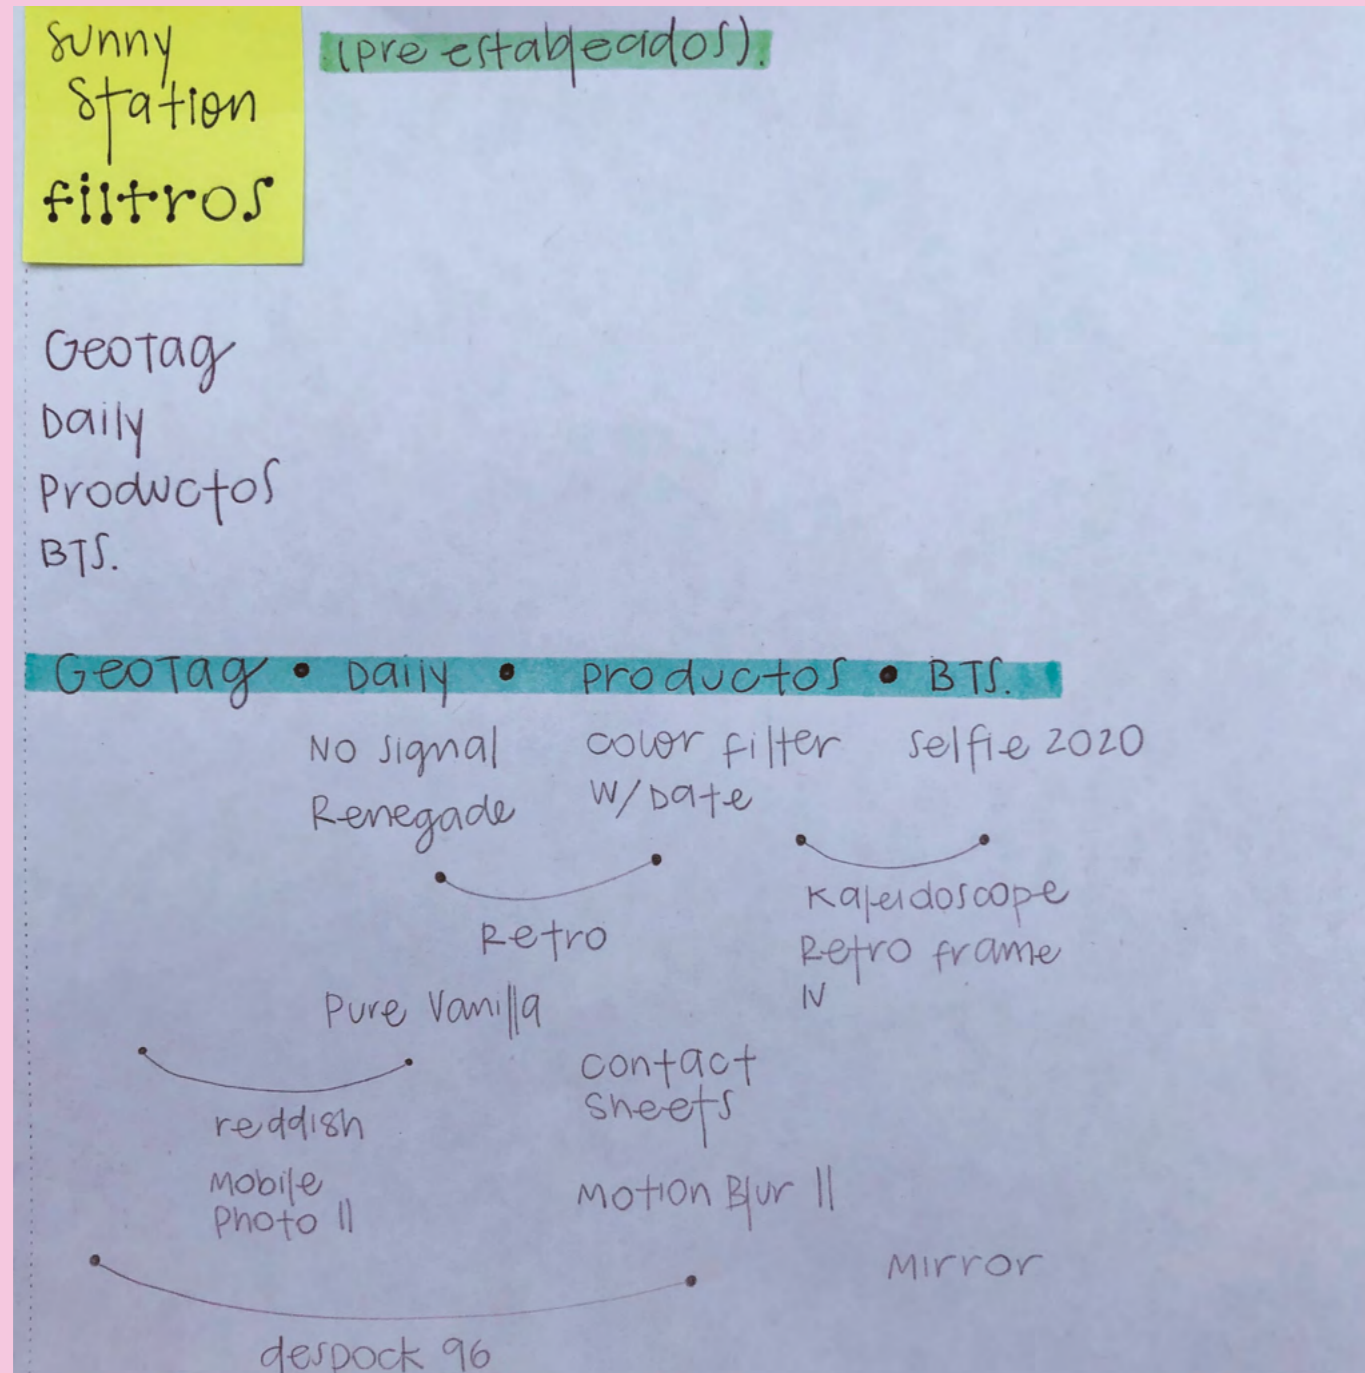 sunny
station
filtros
(pre establecidos).
Geotag
Daily
Productos
BTS.
GeoTag • Daily • productos • BTS.
No signal
Renegade
color filter
W/Date
selfie 2020
Retro
Kaleidoscope
Retro frame
IV
Pure Vanilla
reddish
Mobile
Photo II
contact
sheets
Motion Blur II
Mirror
despock 96